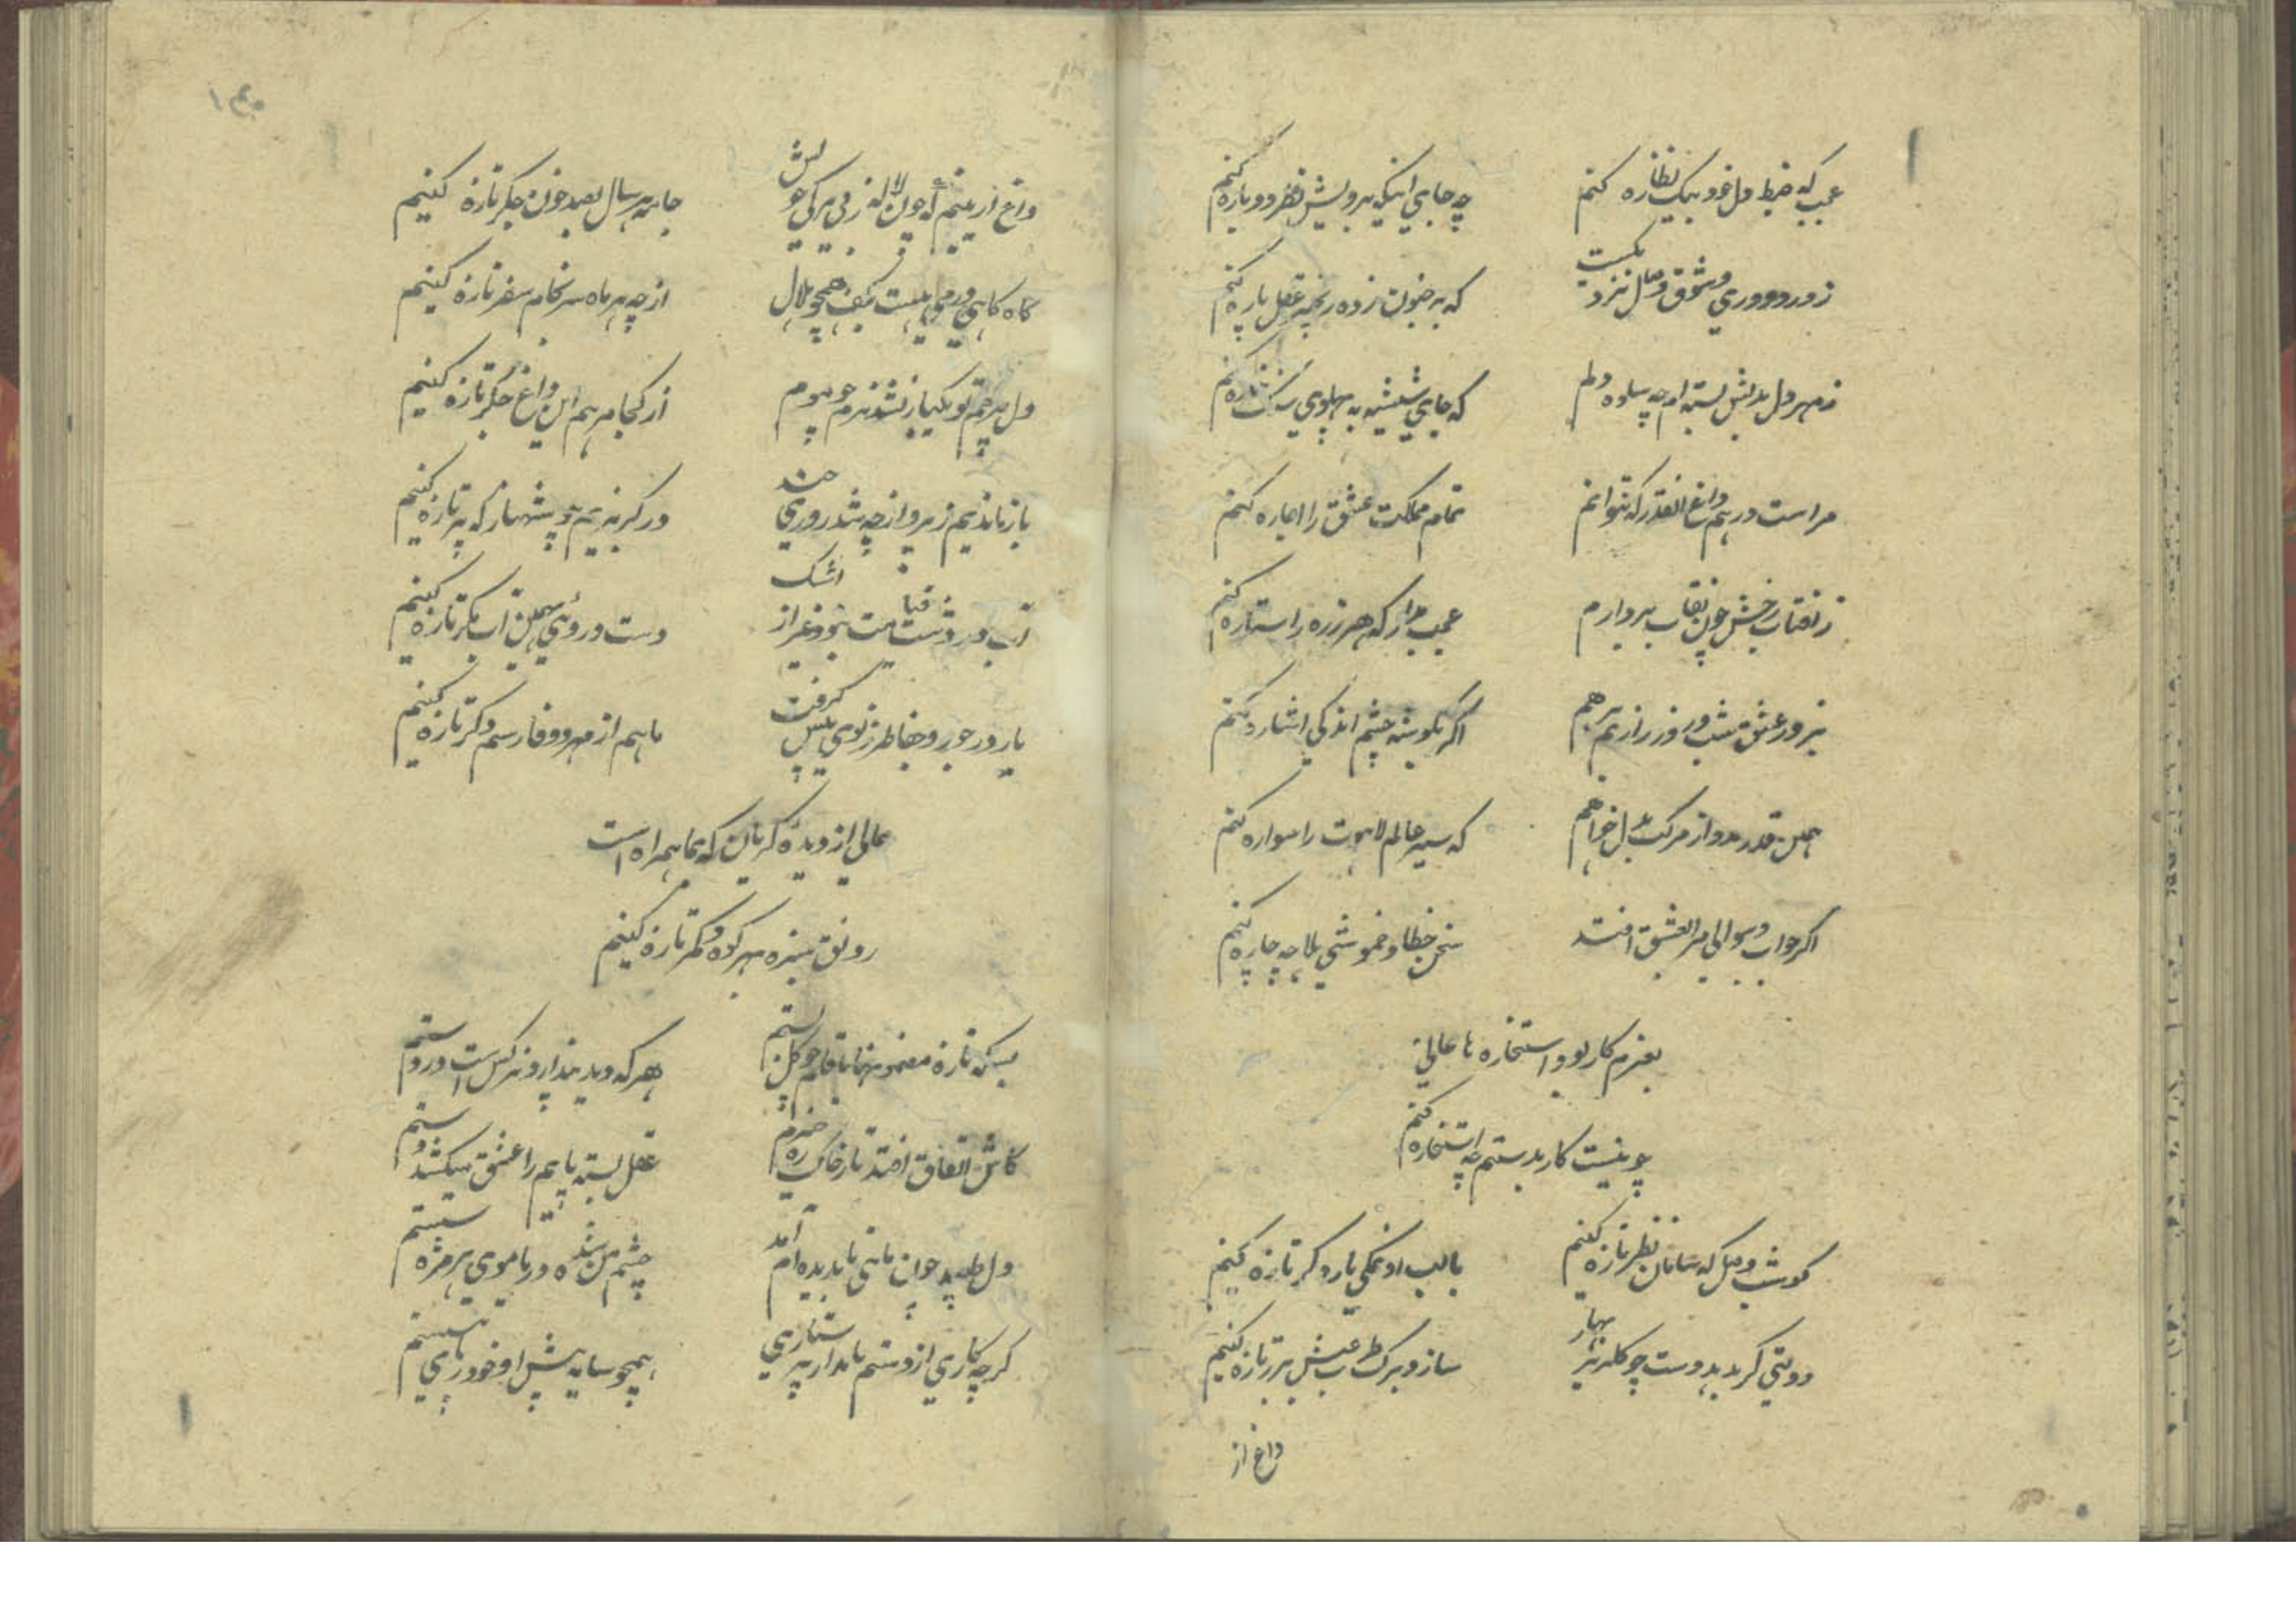 عجب که ضبط دل خود بیک نظاره کنم
چه جای اینکه برویش نظر دوباره کنم
ز درد دوری و شوق وصال نزد یکیست
که بر جنون زده زنجیر عقل پاره کنم
ز مهر دل بدلش بسته ام چه ساده دلم
که جای شیشه به پهلوی سنگ خاره کنم
مراست درهم داغ آنقدر که بتوانم
تمام مملکت عشق را اجاره کنم
ز آفتاب رخش چون نقاب بردارم
عجب مدار که هر ذره را ستاره کنم
نبرد عشق شب و روز را زنم برهم
اگر بگوشه چشم اندکی اشاره کنم
همین قدر مدد از مرکب بدل خواهم
که سیر عالم لاهوت را سواره کنم
اگر جواب و سوالی مرا بعشق افتد
سخن خطا و خموشی بلا چه چاره کنم
بعزم کار بود استخاره ها عالی
چو نیست کار بدستم چه استخاره کنم
گو شب وصل که سامان نظر تازه کنیم
با لب او نمکی بار دگر تازه کنیم
دولتی گر بدهد دست چو گلریز بهار
ساز و برگ طرب عیش بزر تازه کنیم
داغ از
۱۴۵
داغ از اینیم که چون لاله ز بی برگی خویش
جامه هر سال بصد خون جگر تازه کنیم
گاه گاهی ورمی نیست بکف همچو هلال
از چه هر ماه سرانجام سفر تازه کنیم
دل بیرحم تو یکبار نشد نرم چو موم
از کجا مرهم این داغ جگر تازه کنیم
باز ماندیم ز پرواز چه شد روزی چند
در گریزیم چو شهباز که پر تازه کنیم
آب در دشت قیامت نبود غیر از اشک
دست و روئی بهمین آب مگر تازه کنیم
یار در جور و جفا طرز نوی پیش گرفت
ما هم از مهر و وفا رسم دگر تازه کنیم
عالی از دیده گریان که بما همراه است
رونق سبزه بهر کوه و کمر تازه کنیم
بسکه تازه مضمونها بآن چو گل بستم
هرکه دید پندارد نرگس است در دستم
کاش اتفاق افتد تا ز خاک ره خیزم
عقل بسته پایم را عشق میکشد دستم
دل طپید چون ماهی تا بدیده ام آمد
چشم من شده دریا موی هر مژه شستم
گرچه کاری از دستم نامد از پرستاری
همچو سایه پیش او خود ز پای ننشستم